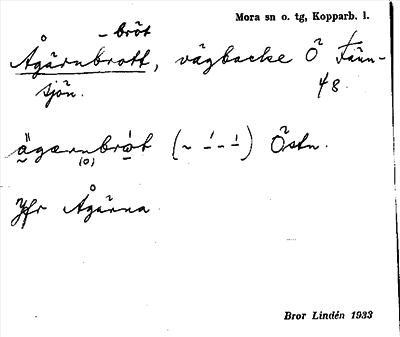 Mora sn o. tg, Kopparb. l.
-bröt
Ågärnbrott, vägbacke Ö Finn-
sjön. 48.
ägærnbröt (~ – – –) Östn.
(o)
Jfr Ågärna
Bror Lindén 1933